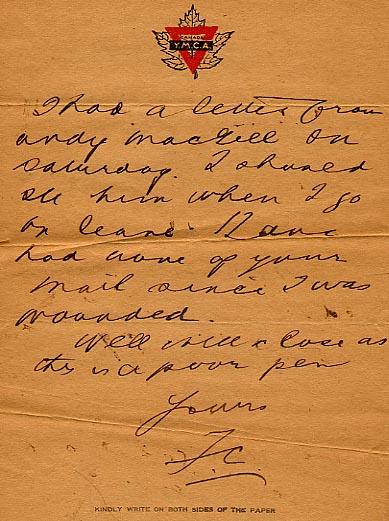 CANADIAN
Y.M.C.A.
I had a letter from
andy MacGill on
Saturday. I should
see him when I go
on leave. I have
had none of your
mail since I was
wounded.
Well will close as
this is a poor pen
Yours
F.C.
KINDLY WRITE ON BOTH SIDES OF THE PAPER